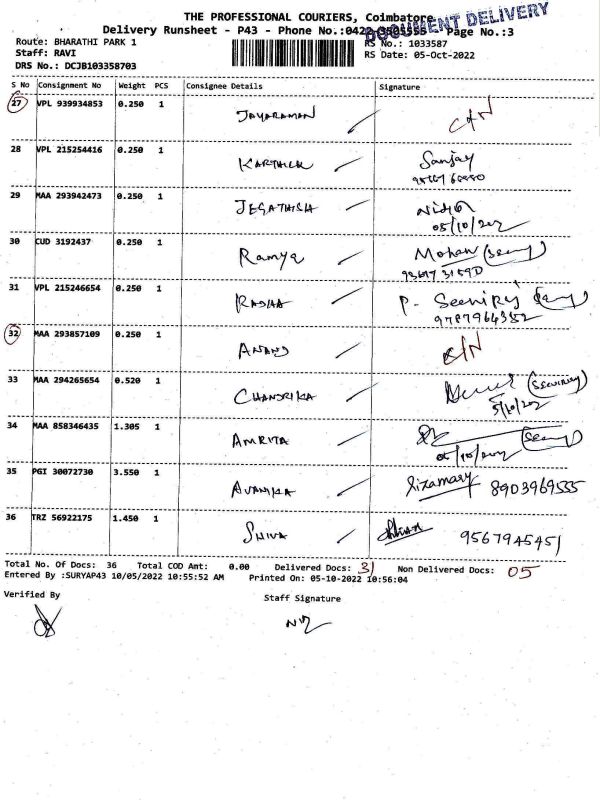 THE PROFESSIONAL COURIERS, Coimbatore
DOCUMENT DELIVERY
Delivery Runsheet - P43 - Phone No.:0422 3505555 Page No.:3
Route: BHARATHI PARK 1
RS No.: 1033587
Staff: RAVI
RS Date: 05-Oct-2022
DRS No.: DCJB103358703
S No Consignment No Weight PCS Consignee Details Signature
27 VPL 939934853 0.250 1 JAYARAMAN
28 VPL 215254416 0.250 1 KARTHICK Sanjay
29 MAA 293942473 0.250 1 JEGATHISH
05/10/202
30 CUD 3192437 0.250 1 Ramya Mohan
31 VPL 215246654 0.250 1 RADHA P. Seeniraj
9787964352
32 MAA 293857109 0.250 1 ANAND
33 MAA 294265654 0.520 1 CHANDRIKA
5/10/202
34 MAA 858346435 1.305 1 AMRITA
05/10/202
35 PGI 30072730 3.550 1 AVANIKA lizamary 8903969555
36 TRZ 56922175 1.450 1 SHIVA 9567945451
Total No. Of Docs: 36 Total COD Amt: 0.00 Delivered Docs: 31 Non Delivered Docs: 05
Entered By :SURYAP43 10/05/2022 10:55:52 AM Printed On: 05-10-2022 10:56:04
Verified By
Staff Signature